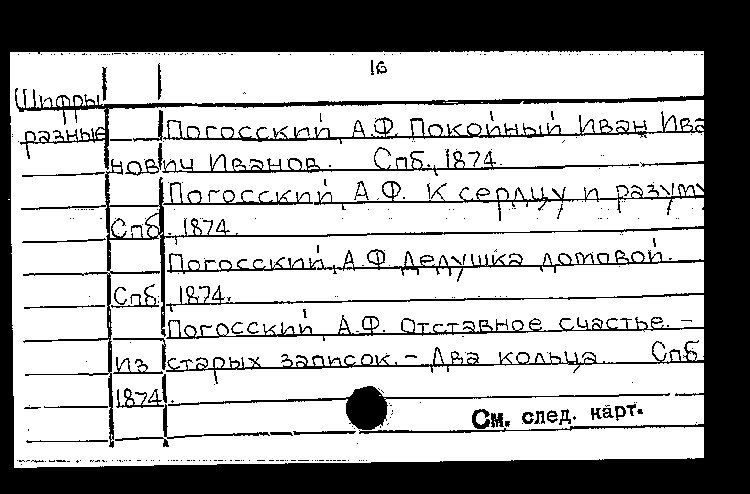 1б
Шифры
разные Погосский, А.Ф. Покойный Иван Ива
нович Иванов. Спб., 1874.
Погосский, А.Ф. К сердцу и разуму
Спб., 1874.
Погосский, А.Ф. Дедушка домовой.
Спб., 1874.
Погосский, А.Ф. Отставное счастье. –
Из старых записок. – Два кольца. Спб.
1874.
См. след. карт.